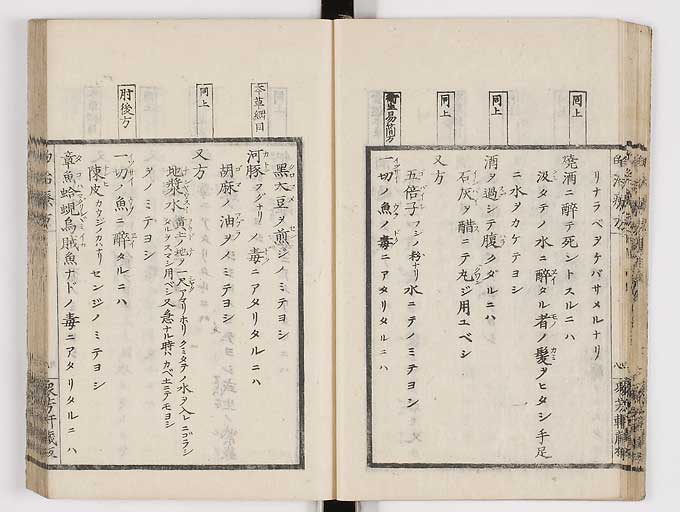 リナラベヲケバサメルナリ
同上
焼酒ニ酔テ死ントスルニハ
汲タテノ水ニ酔タル者ノ髪ヲヒタシ手足
ニ水ヲカケテヨシ
同上
酒ヲ過シテ腹クダルニハ
石灰ヲ醋ニテ丸ジ用ユベシ
同上
又方
五倍子フシノ粉ナリ水ニテノミテヨシ
衛生易簡方
一切ノ魚ノ毒ニアタリタルニハ
黒大豆ヲ煎ジノミテヨシ
本草綱目
河豚フグナリノ毒ニアタリタルニハ
胡麻ノ油ヲノミテヨシ
同上
又方
地漿水
黄土ノ地ヲ一尺アマリホリクミタテノ水ヲ入レニゴラシ
タルヲスマシ用ベシ又急ナル時ハカベ土ニテモヨシ
ヲノミテヨシ
肘後方
一切ノ魚ニ酔タルニハ
陳皮カウジノカハナリセンジノミテヨシ
章魚蛤蜆烏賊魚ナドノ毒ニアタリタルニハ